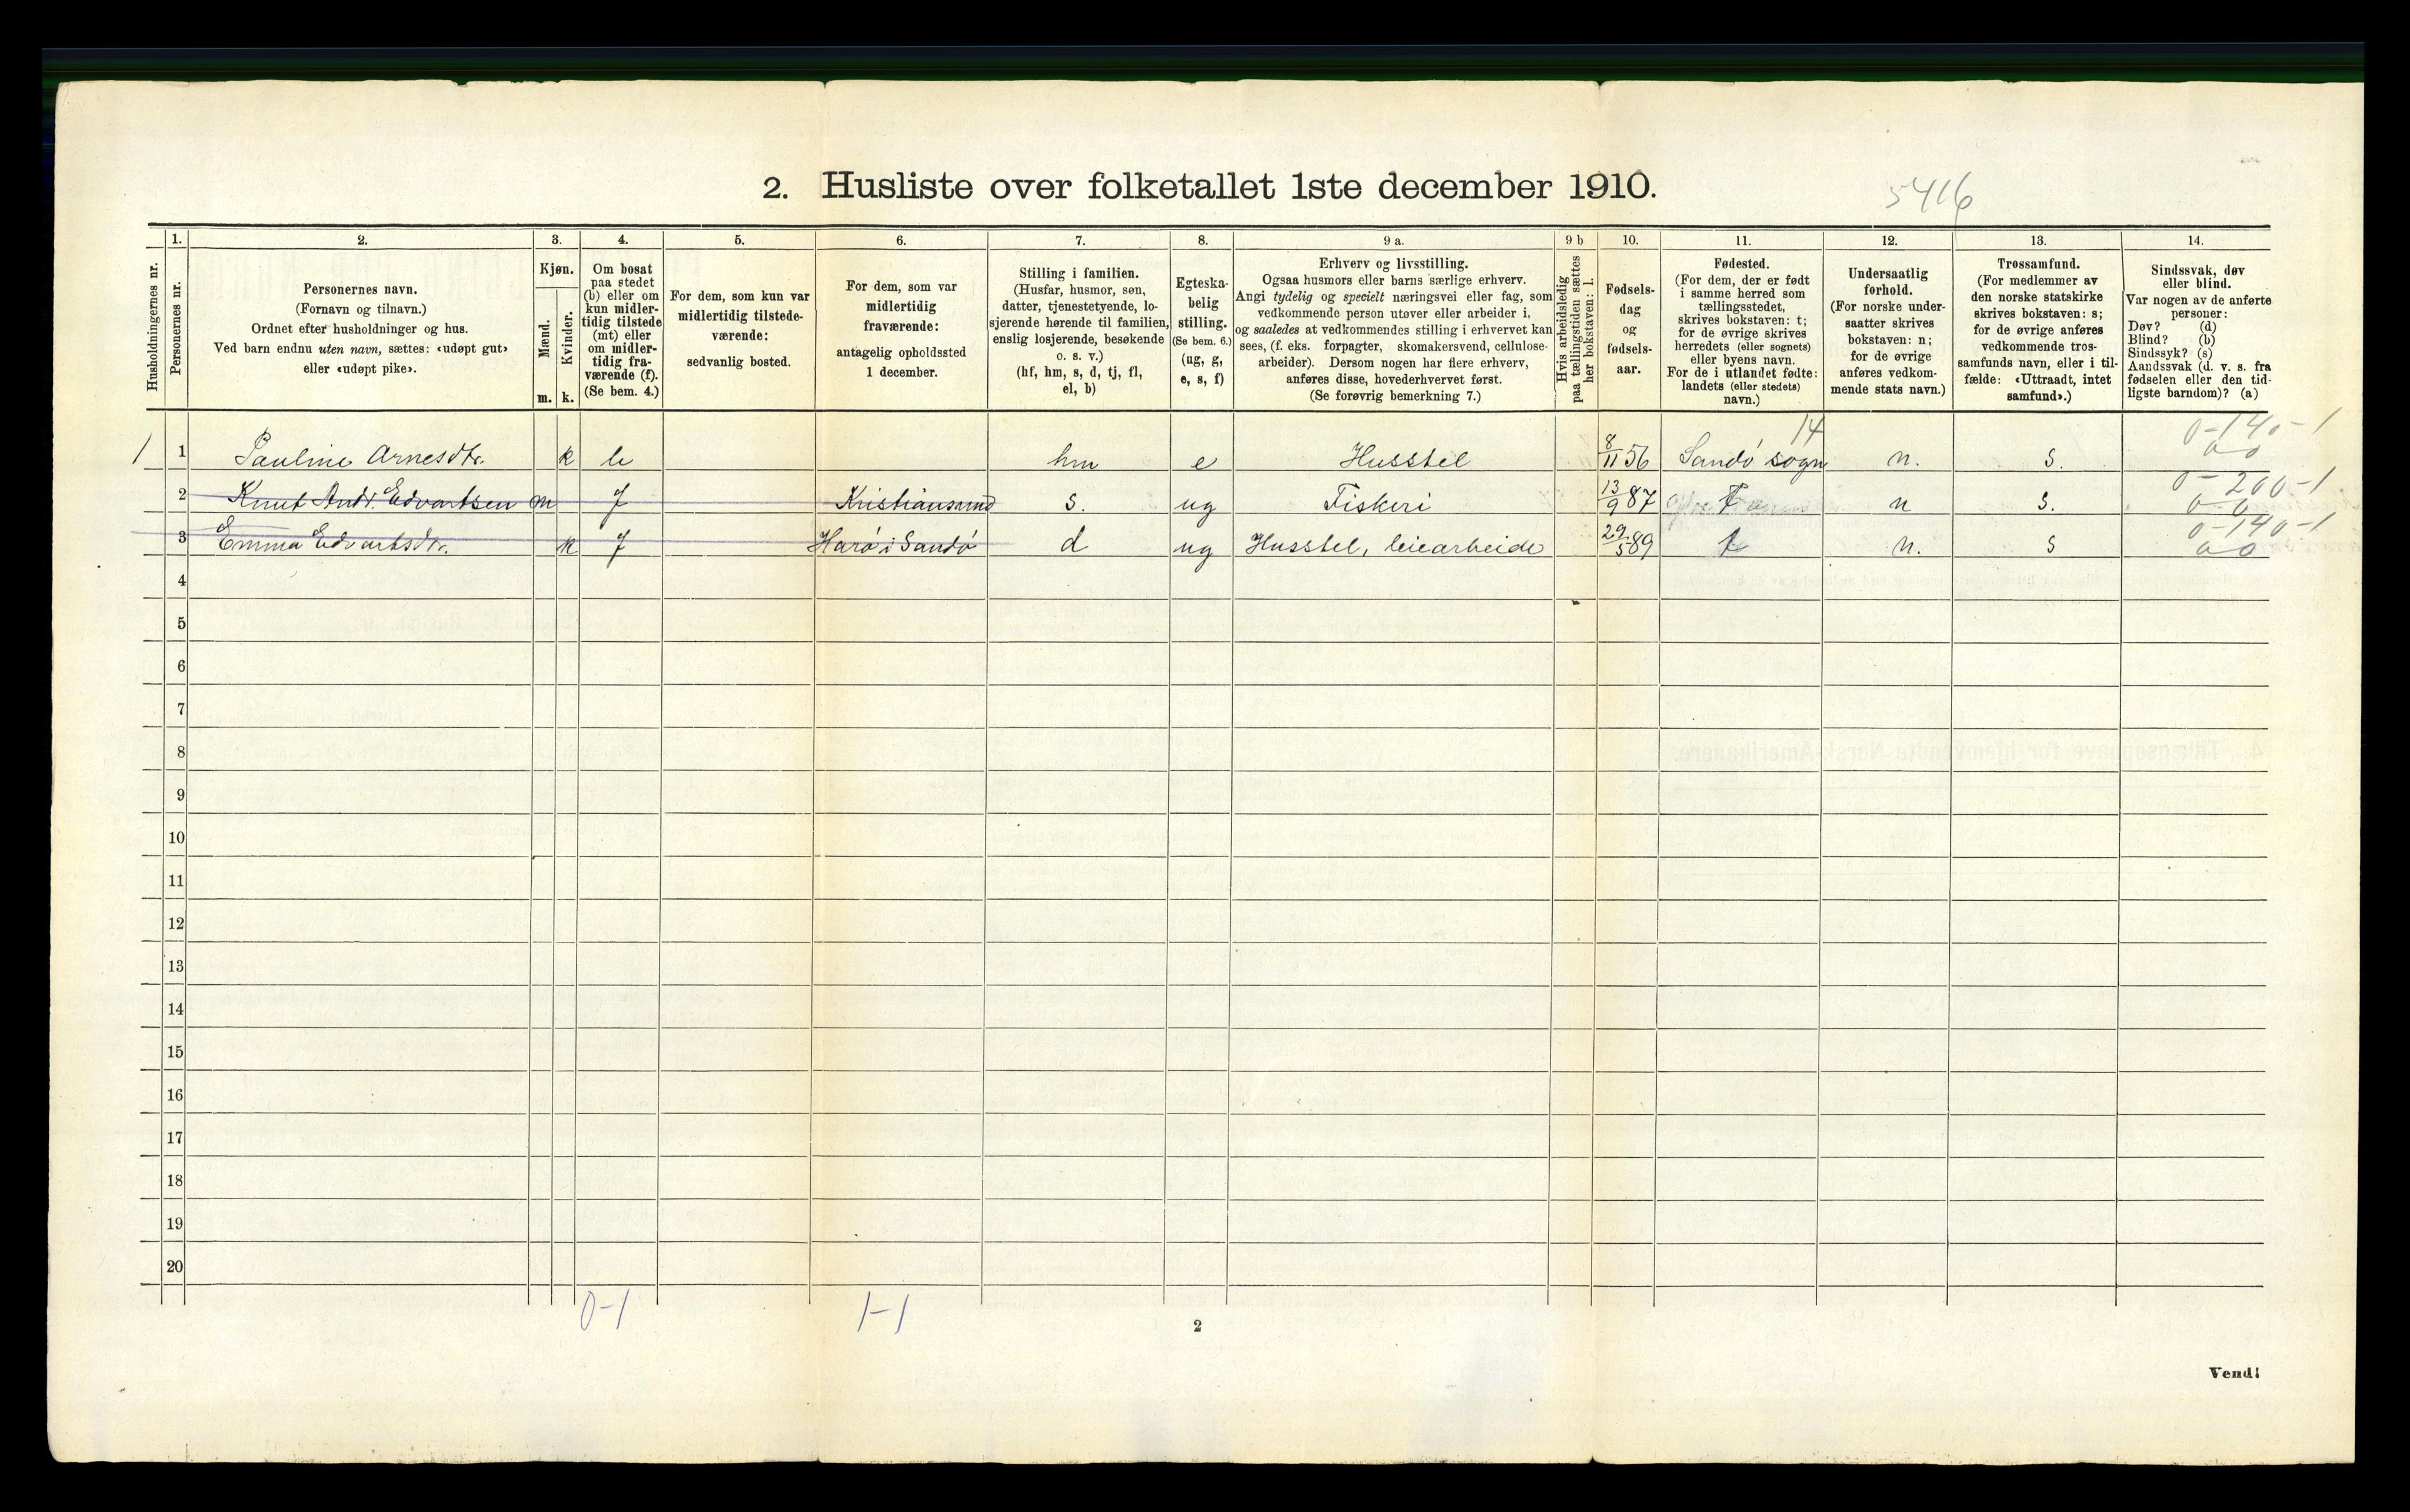 2. Husliste over folketallet 1ste december 1910.
5416
Husholdningernes nr.
1.
Personernes nr.
2.
Personernes navn.
(Fornavn og tilnavn.)
Ordnet efter husholdninger og hus.
Ved barn endnu uten navn, sættes: «udøpt gut»
eller «udøpt pike».
3.
Kjøn.
Mænd.
Kvinder.
m. k.
4.
Om bosat
paa stedet
(b) eller om
kun midler-
tidig tilstede
(mt) eller
om midler-
tidig fra-
værende (f).
(Se bem. 4.)
5.
For dem, som kun var
midlertidig tilstede-
værende:
sedvanlig bosted.
6.
For dem, som var
midlertidig
fraværende:
antagelig opholdssted
1 december.
7.
Stilling i familien.
(Husfar, husmor, søn,
datter, tjenestetyende, lo-
sjerende hørende til familien,
enslig losjerende, besøkende
o. s. v.)
(hf, hm, s, d, tj, fl,
el, b)
8.
Egteska-
belig
stilling.
(Se bem. 6.)
(ug, g,
e, s, f)
9 a.
Erhverv og livsstilling.
Ogsaa husmors eller barns særlige erhverv.
Angi tydelig og specielt næringsvei eller fag, som
vedkommende person utøver eller arbeider i,
og saaledes at vedkommendes stilling i erhvervet kan
sees, (f. eks. forpagter, skomakersvend, cellulose-
arbeider). Dersom nogen har flere erhverv,
anføres disse, hovederhvervet først.
(Se forøvrig bemerkning 7.)
9 b
Hvis arbeidsledig
paa tællingstiden sættes
her bokstaven: l.
10.
Fødsels-
dag
og
fødsels-
aar.
11.
Fødested.
(For dem, der er født
i samme herred som
tællingsstedet,
skrives bokstaven: t;
for de øvrige skrives
herredets (eller sognets)
eller byens navn.
For de i utlandet fødte:
landets (eller stedets)
navn.)
12.
Undersaatlig
forhold.
(For norske under-
saatter skrives
bokstaven: n;
for de øvrige
anføres vedkom-
mende stats navn.)
13.
Trossamfund.
(For medlemmer av
den norske statskirke
skrives bokstaven: s;
for de øvrige anføres
vedkommende tros-
samfunds navn, eller i til-
fælde: «Uttraadt, intet
samfund».)
14.
Sindssvak, døv
eller blind.
Var nogen av de anførte
personer:
Døv? (d)
Blind? (b)
Sindssyk? (s)
Aandssvak (d. v. s. fra
fødselen eller den tid-
ligste barndom)? (a)
14 0-140-1
1 1 Pauline Arnesdtr. k b hm e Husstel 8/11 56 Sandö sogn n. s. 00
0-200-1
2 Knut Andr. Edvartsen m f Kristiansund s. ug Fiskeri 13/9 87 t n s. 00
0-140-1
3 Emma Edvartsdtr. k f Harö i Sandö d ug Husstel, leiearbeide 29/5 89 t n. s 00
4
5
6
7
8
9
10
11
12
13
14
15
16
17
18
19
20
0-1 1-1
2
Vend!